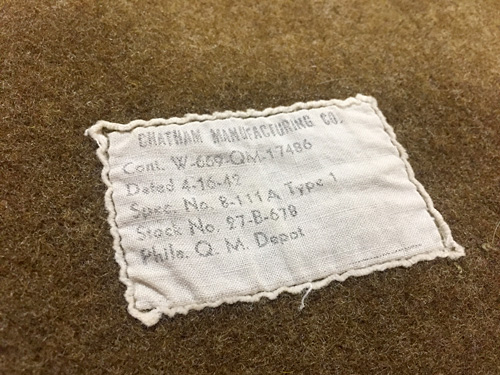 CHATHAM MANUFACTURING CO.
Cont. W-669-QM-17486
Dated 4-16-42
Spec. No. 8-111A Type 1
Stock No. 27-B-678
Phila. Q. M. Depot